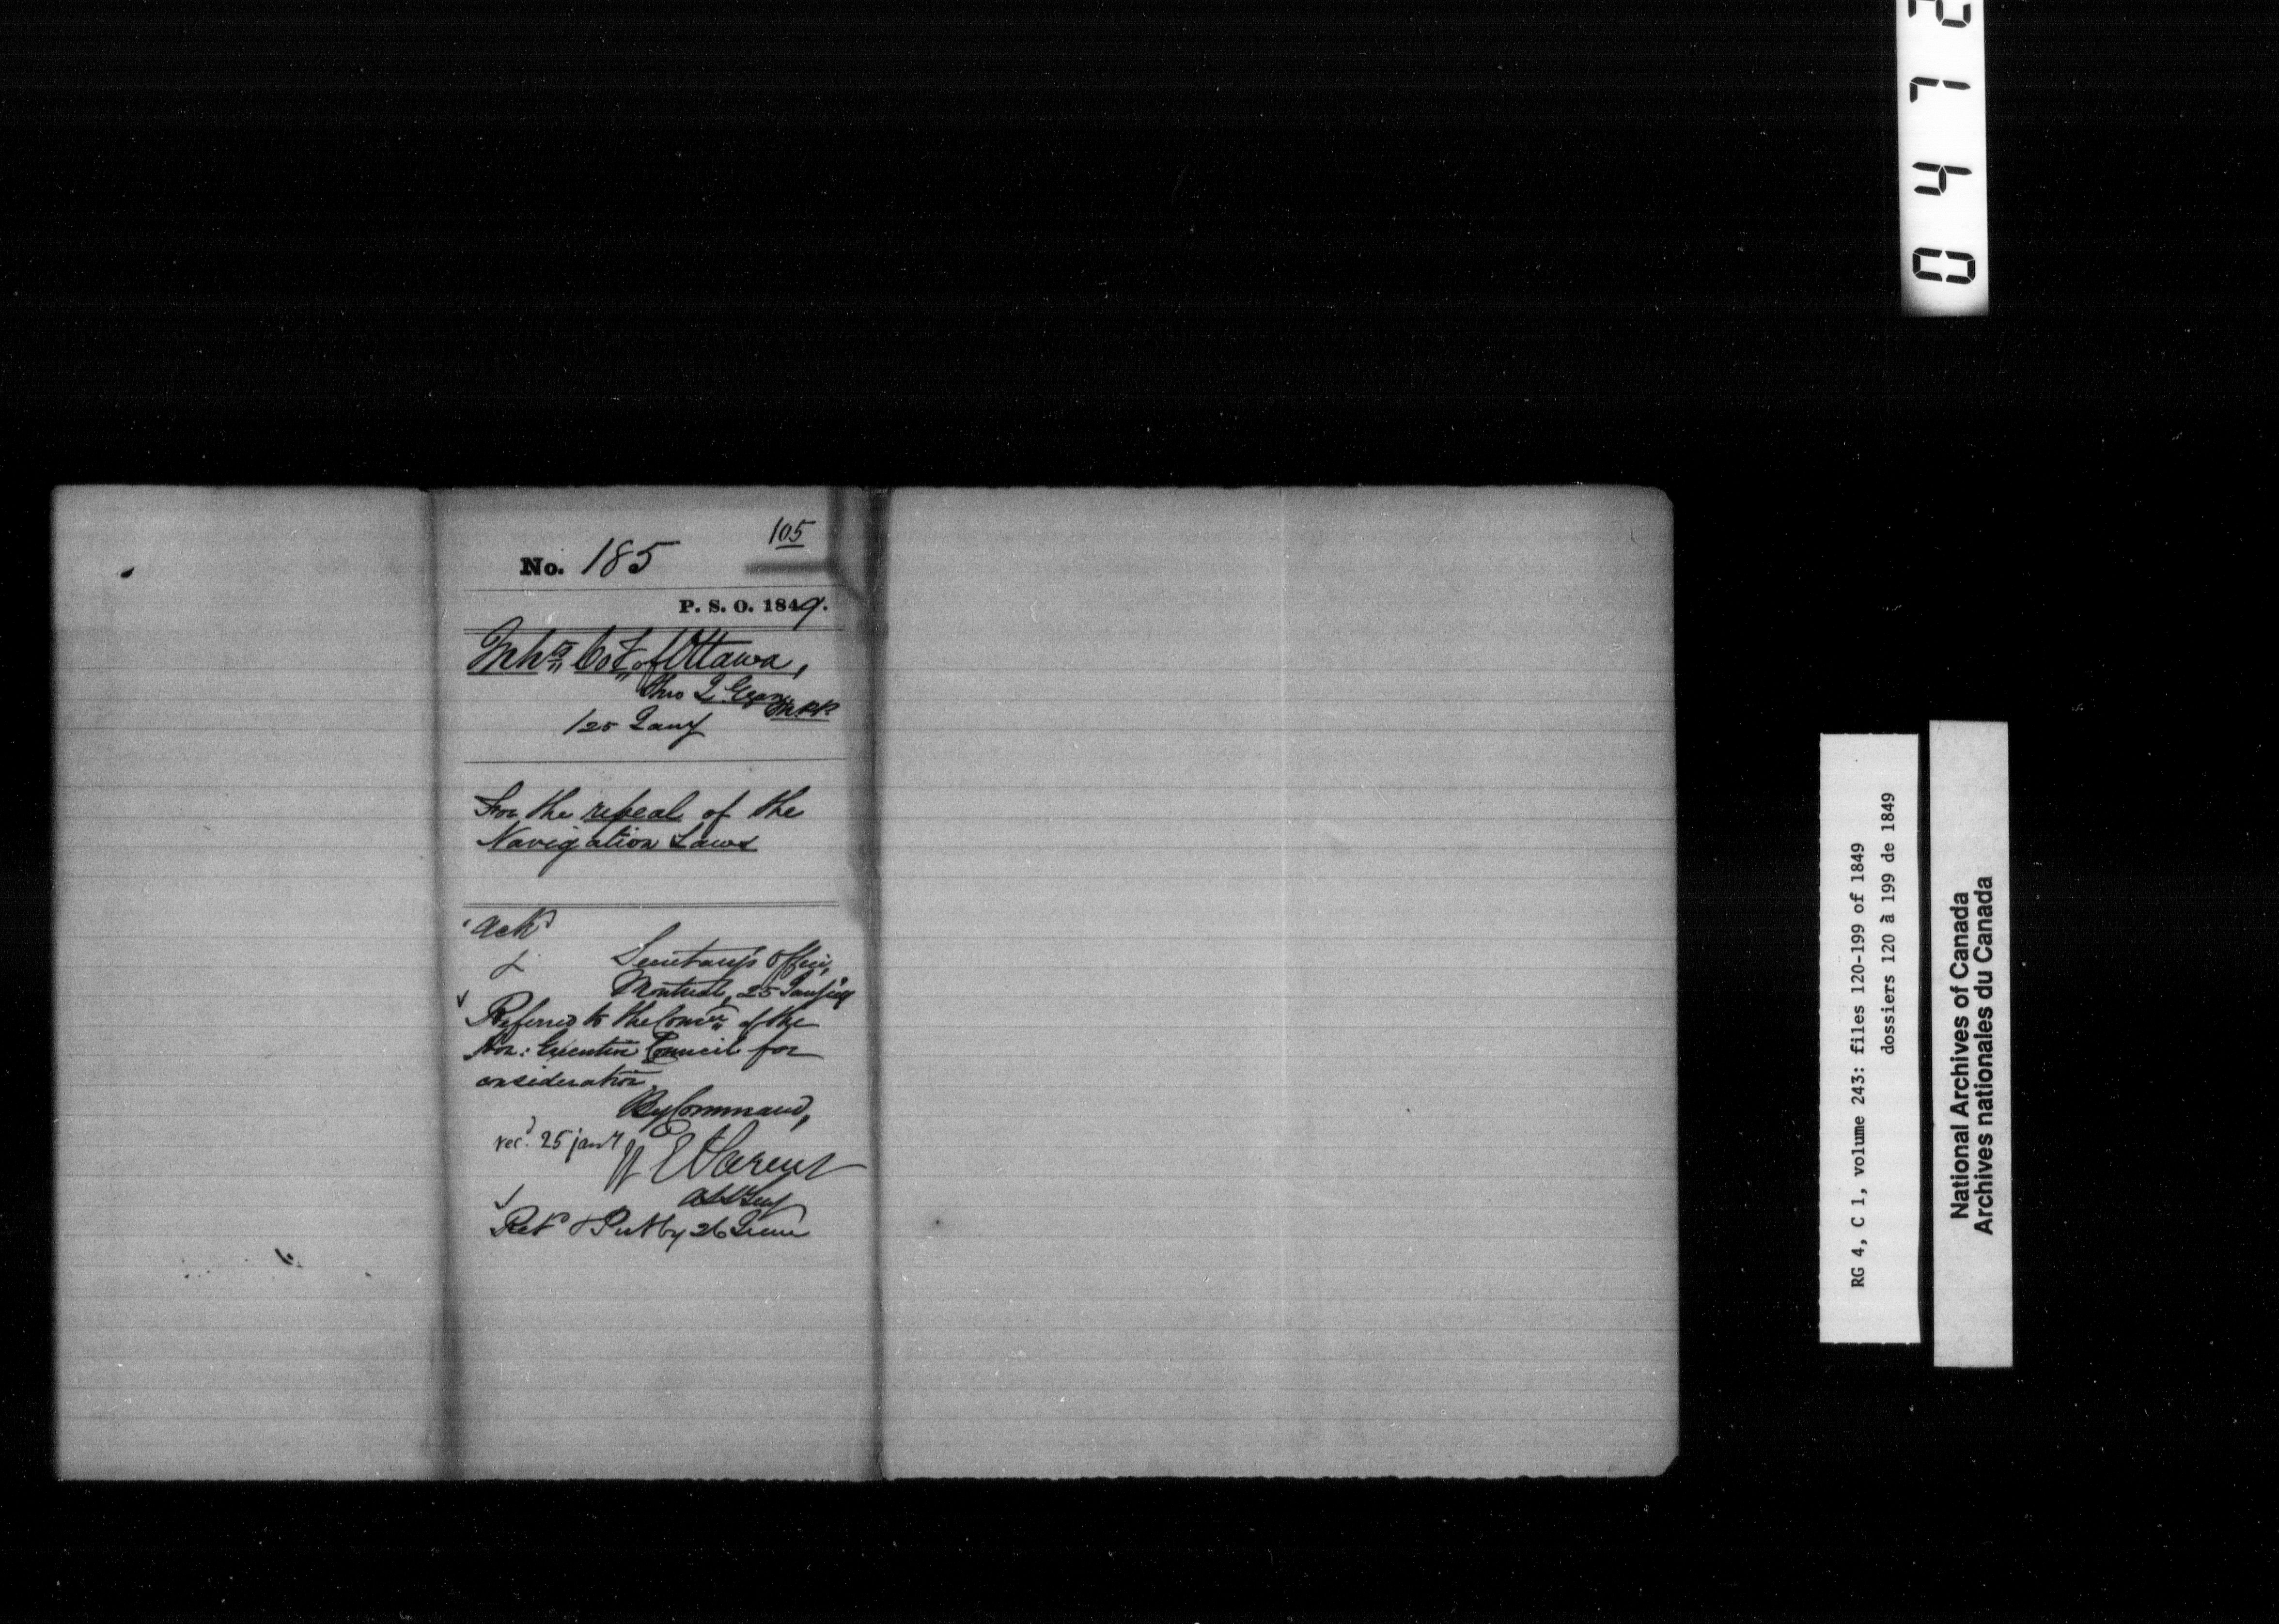 105
No. 185
P. S. O. 1849.
Inhts Coty of Ottawa,
thro J. Egan
M.P.P.
/25 Jany
For the repeal of the
Navigation Laws
Ackd
Secretary's Office,
Montreal, 25 Jany
Referred to the Comee of the
Hon: Executive Council for
consideration
By Command,
recd. 25 jany
E Parent
Ret & Put by 26 June
0 4 7 2
RG 4, C 1, volume 243: files 120-199 of 1849
dossiers 120 à 199 de 1849
National Archives of Canada
Archives nationales du Canada